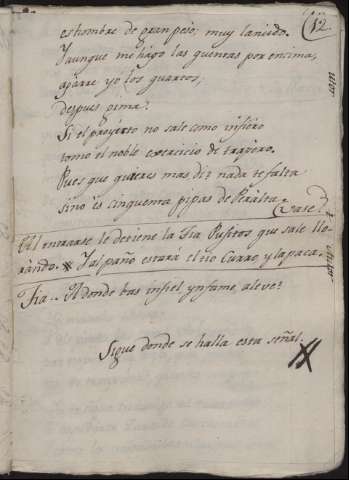 12.
es hombre de gran peso, muy lanudo.
Y aunque me hago las quentas por encima,
agarre yo los quartos,
despues gima?
Si el proyecto no sale como infiero
tomo el noble exercicio de trapero.
Pues que quieres mas di? nada te falta
sino es cinquenta pipas de Peralta
(vase.)
Al entrarse le detiene la Tia Pusitos que sale llo-
rando. Y al paño estará el tio Curro, y la paca.
Tia.. A donde bas infiel ynfame, aleve?
Sigue donde se halla esta señal.